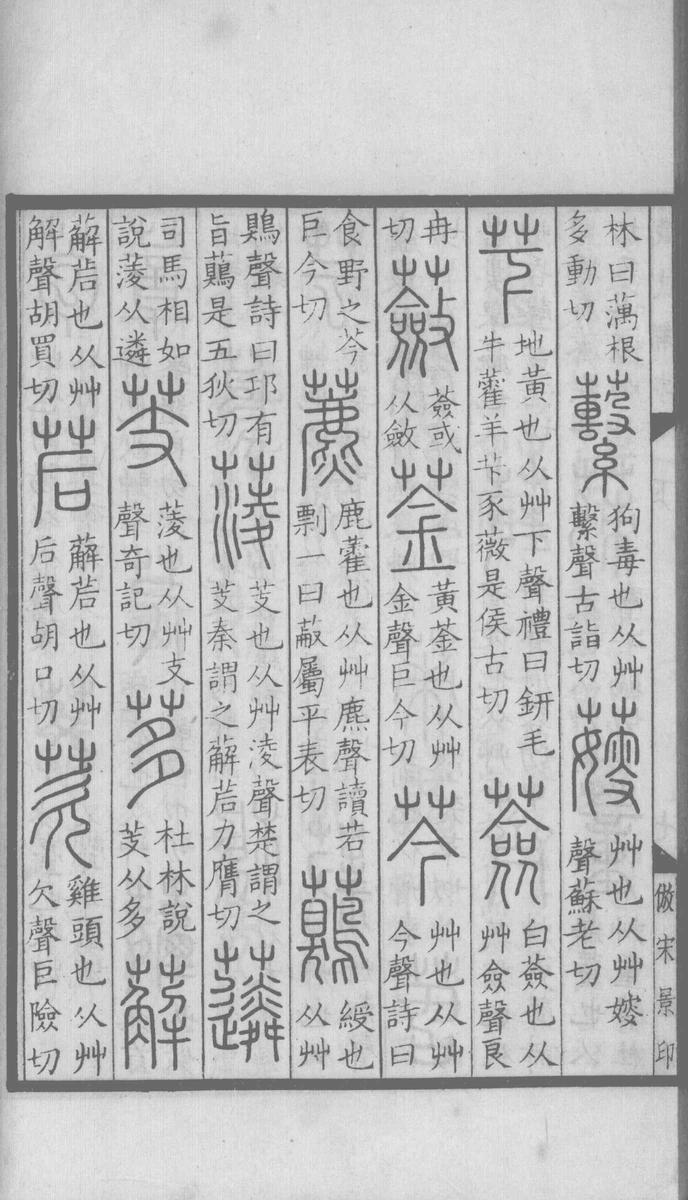 林曰蕅根多動切蘻狗毒也从艸繫聲古詣切䕅艸也从艸㛮聲蘇老切
芐地黃也从艸下聲禮曰鈃毛牛藿羊芐豕薇是侯古切薟白薟也从艸僉聲良
冉切蘞薟或从斂菳黃菳也从艸金聲巨今切芩艸也从艸今聲詩曰
食野之芩巨今切藨鹿藿也从艸麃聲讀若剽一曰蔽屬平表切𧃲綬也从艸
鶪聲詩曰邛有旨𧃲是五狄切蔆芰也从艸淩聲楚謂之芰秦謂之薢茩力膺切𧅄
司馬相如說蔆从遴芰蔆也从艸支聲奇記切茤杜林說芰从多薢
薢茩也从艸解聲胡買切茩薢茩也从艸后聲胡口切芡雞頭也从艸欠聲巨險切
倣宋景印